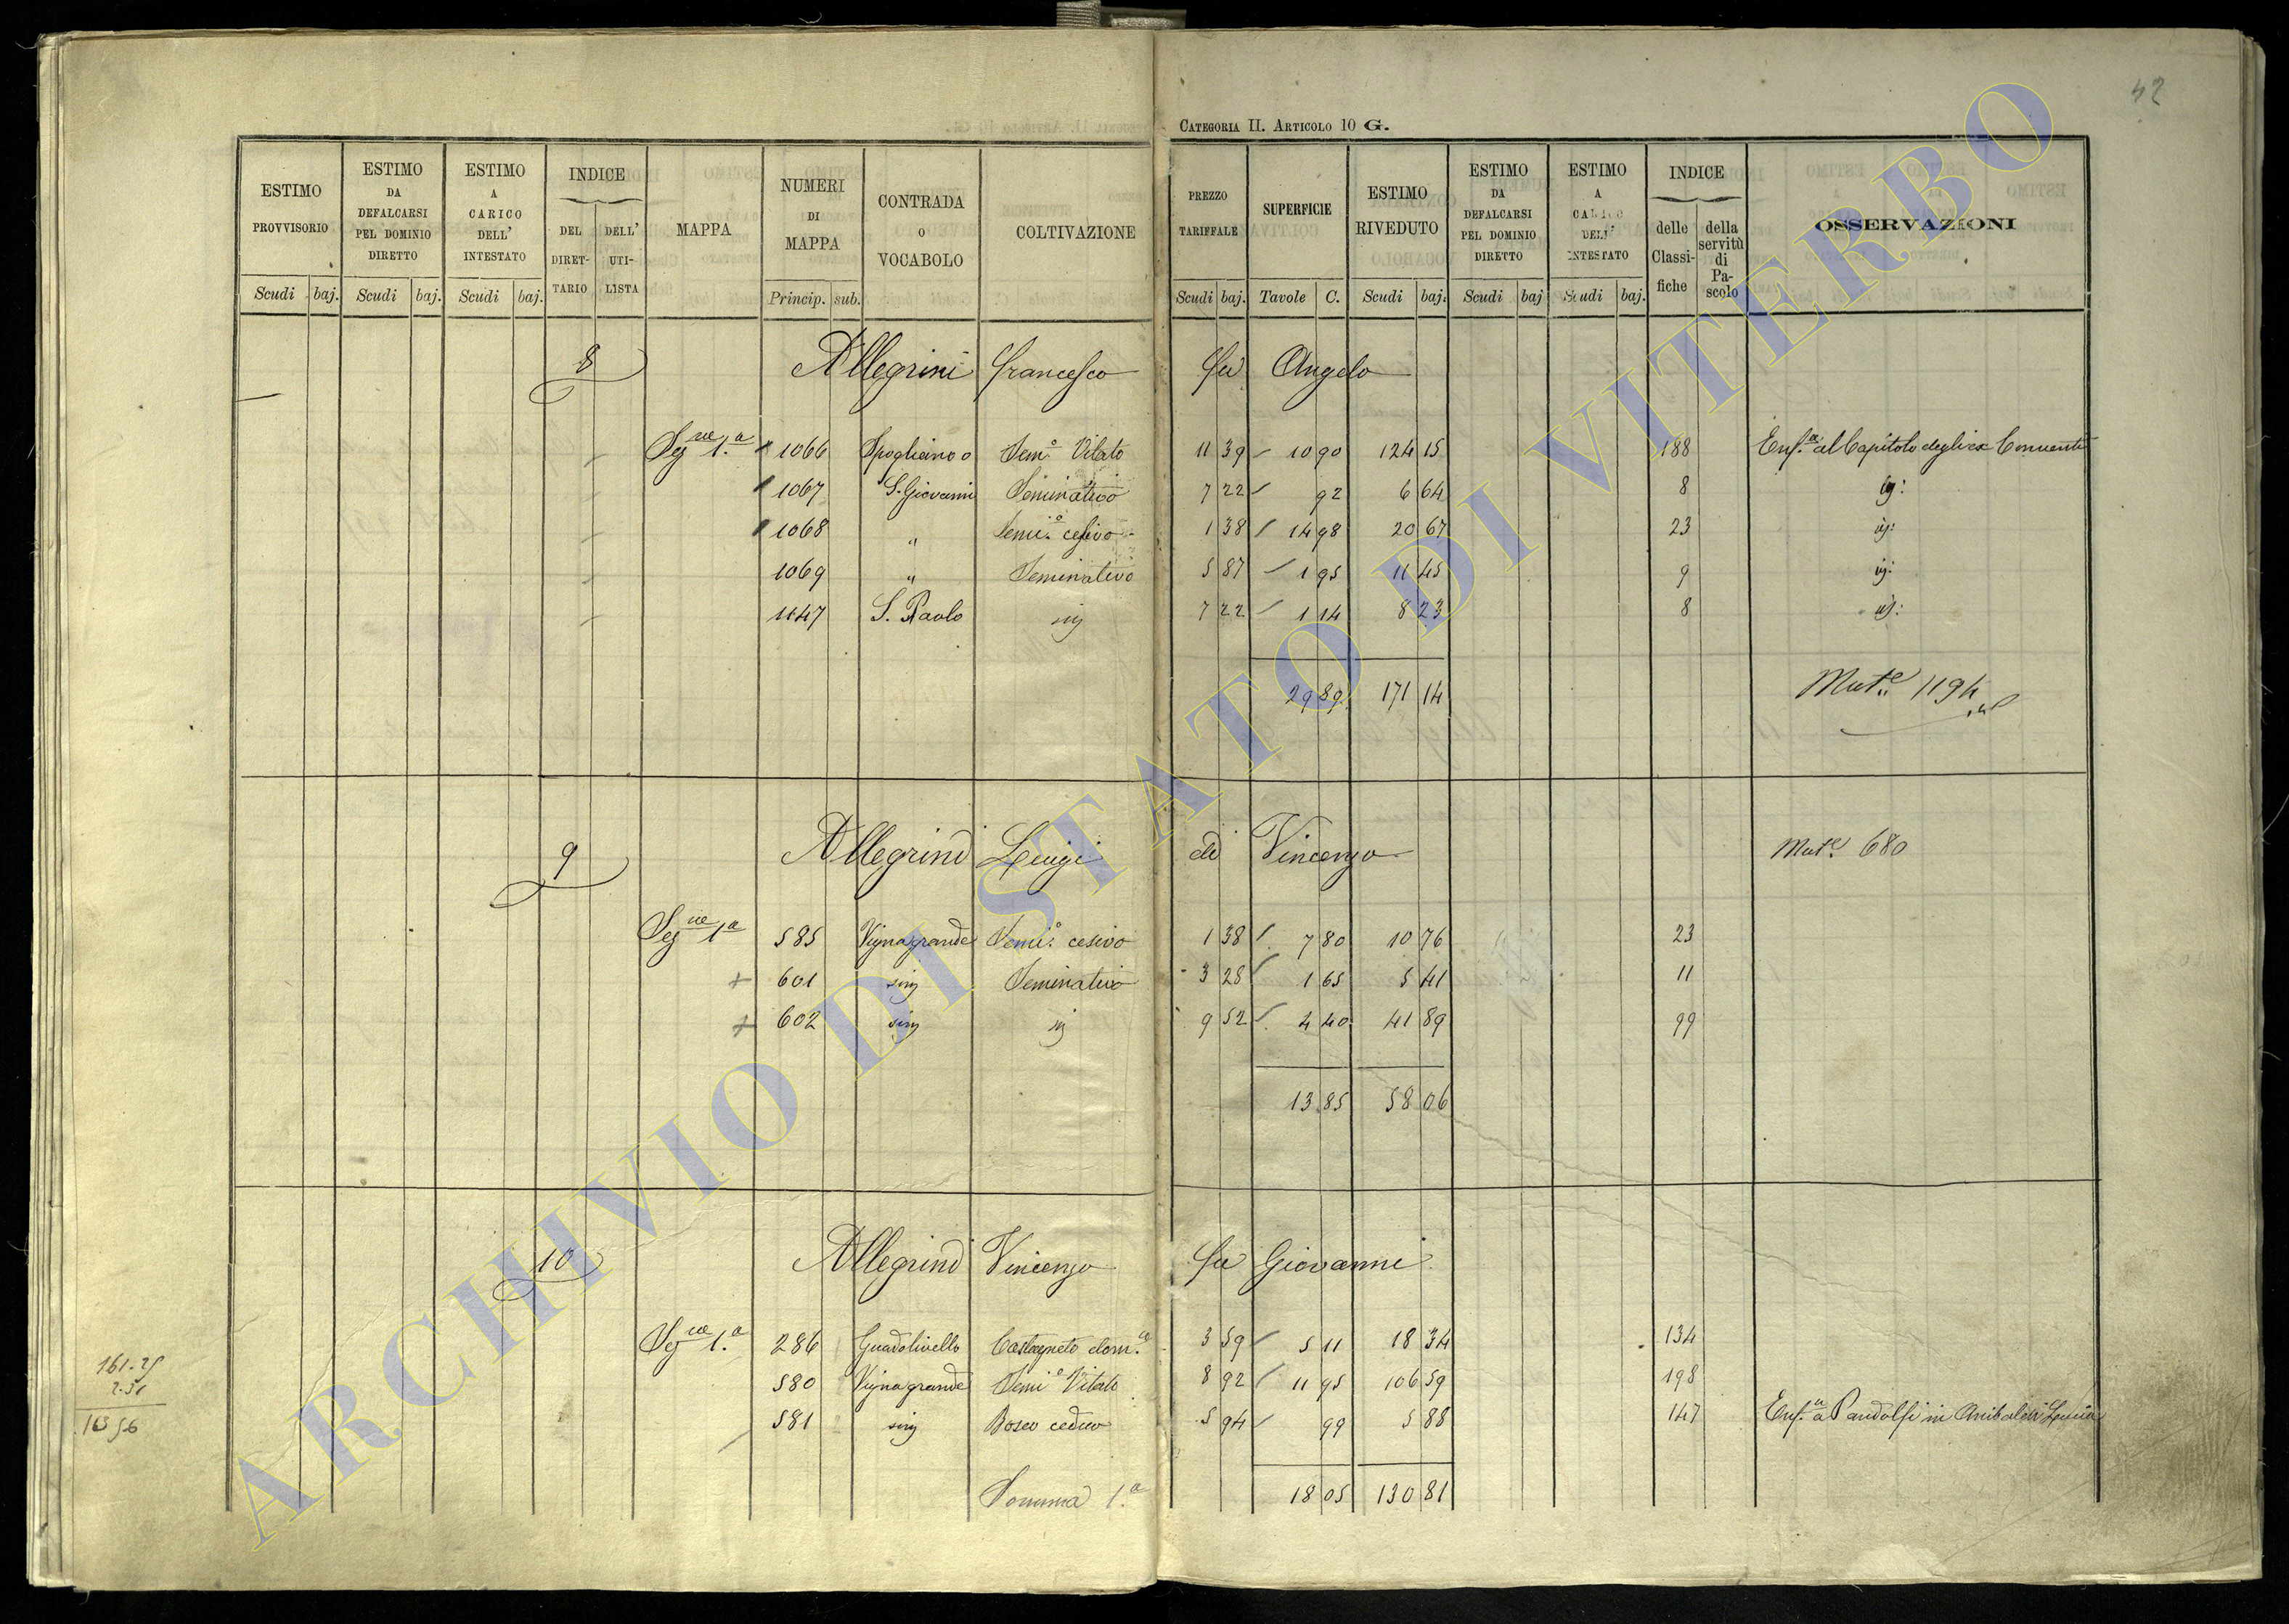 42
CATEGORIA II. ARTICOLO 10 G.
ESTIMO PROVVISORIO Scudi baj. | ESTIMO DA DEFALCARSI PEL DOMINIO DIRETTO Scudi baj. | ESTIMO A CARICO DELL' INTESTATO Scudi baj. | INDICE DEL DIRET-TARIO DELL' UTI-LISTA | MAPPA | NUMERI DI MAPPA Princip. sub. | CONTRADA O VOCABOLO | COLTIVAZIONE | PREZZO TARIFFALE Scudi baj. | SUPERFICIE Tavole C. | ESTIMO RIVEDUTO Scudi baj. | ESTIMO DA DEFALCARSI PEL DOMINIO DIRETTO Scudi baj | ESTIMO A CARICO DELL' INTESTATO Scudi baj. | INDICE delle Classi-fiche della servitù di Pa-scolo | OSSERVAZIONI
8 Allegrini Francesco fu Angelo
Seg.ne 1.a 1066 Spogliano o Sem.o Vitato 11 39 10 90 124 15 188 Enf.a al Capitolo degli ex Conventi
1067 S. Giovanni Seminativo 7 22 92 6 64 8 id:
1068 " Semi.o cesivo 1 38 14 98 20 67 23 id:
1069 " Seminativo 5 87 1 95 11 45 9 id:
1147 S. Paolo sig 7 22 1 14 8 23 8 id:
29 89 171 14
Mut.e 1194
9 Allegrini Luigi di Vincenzo Mut.e 680
Seg.ne 1.a 585 Vigna grande Semi.o cesivo 1 38 7 80 10 76 23
+ 601 sig Seminativo 3 28 1 65 5 41 11
+ 602 sig sig 9 52 4 40 41 89 99
13 85 58 06
10 Allegrini Vincenzo fu Giovanni
Seg.ne 1.a 286 Guadolivello Castagneto dom.co 3 59 5 11 18 34 134
580 Vigna grande Semi.o Vitato 8 92 11 95 106 59 198
581 sig Bosco ceduo 5 94 99 5 88 147 Enf.a a Pandolfi in Anibaldi Lucia
Somma 1.a 18 05 130 81
161.25
2.31
163 56
ARCHIVIO DI STATO DI VITERBO